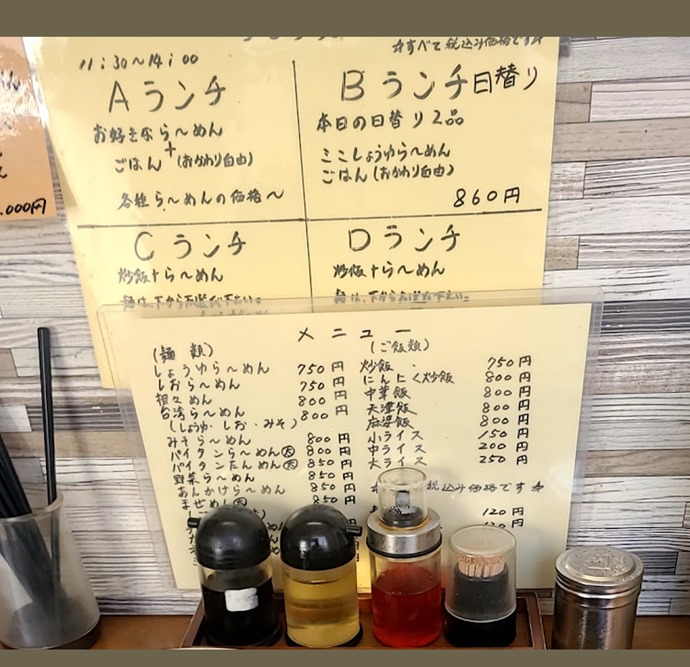 ☆すべて税込み価格です☆
11:30〜14:00
Aランチ
お好きならーめん
+
ごはん(おかわり自由)
各種らーめんの価格〜
Bランチ日替り
本日の日替り2品
ミニしょうゆらーめん
ごはん(おかわり自由)
860円
Cランチ
炒飯+らーめん
麺は、下からお選び下さい。
Dランチ
炒飯+らーめん
麺は、下からお選び下さい。
,000円
メニュー
(麺類)
しょうゆらーめん 750円
しおらーめん 750円
担々めん 800円
台湾らーめん 800円
(しょうゆ・しお・みそ)
みそらーめん 800円
パイタンらーめん 800円
パイタンたんめん 850円
野菜らーめん 850円
あんかけらーめん 850円
まぜめん 850円
(ご飯類)
炒飯 750円
にんにく炒飯 800円
中華飯 800円
天津飯 800円
麻婆飯 800円
小ライス 150円
中ライス 200円
大ライス 250円
税込み価格です☆
120円